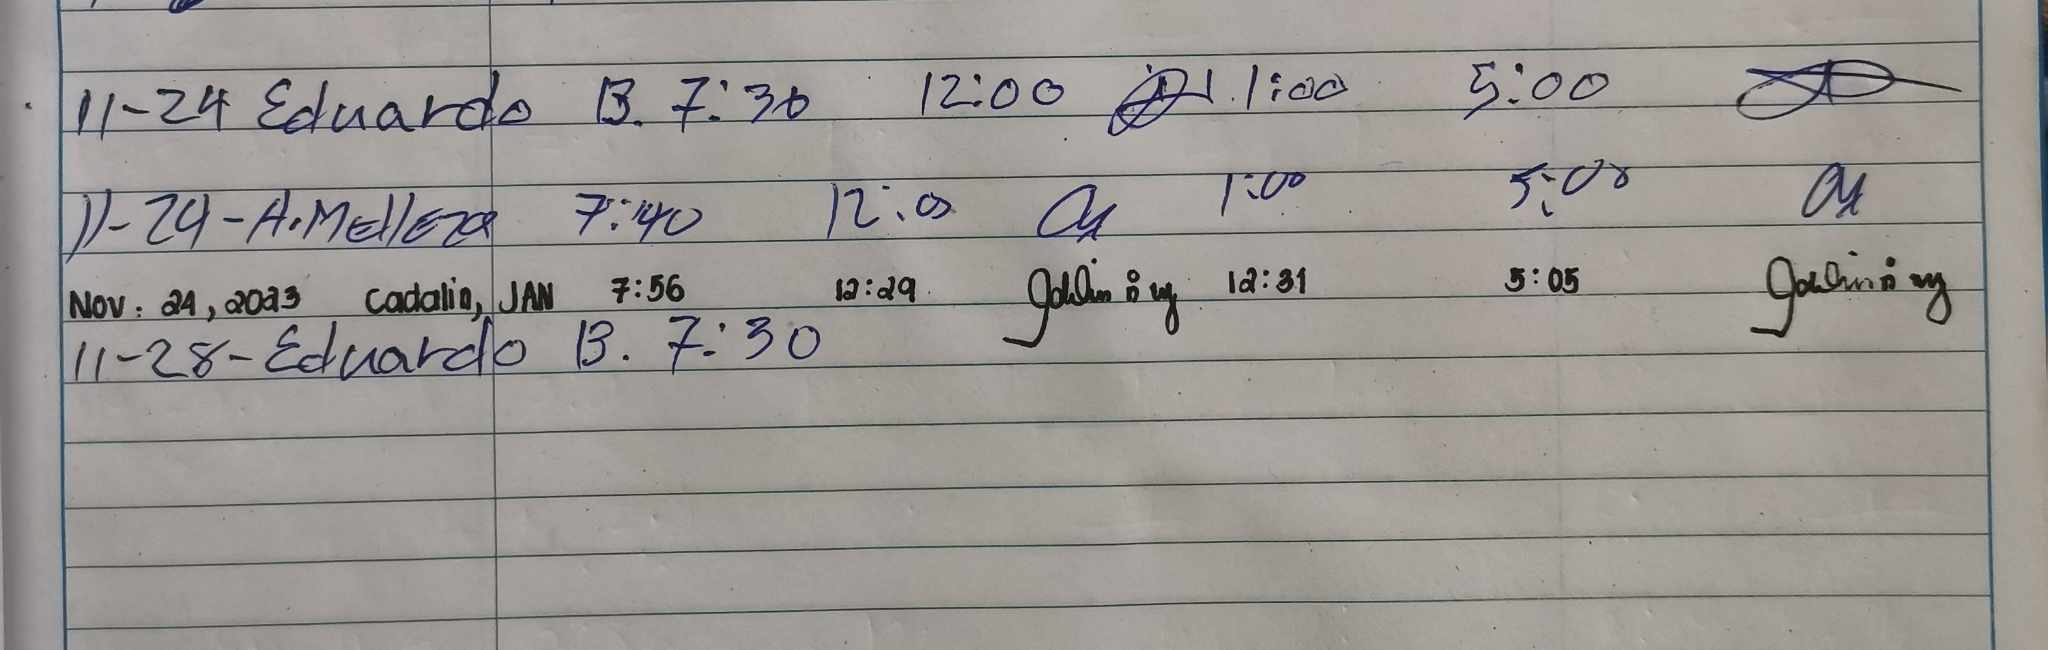 11-24 Eduardo B. 7:30 12:00 1:00 5:00
11-24-A.Melleza 7:40 12:0 1:00 5:00
Nov. 24, 2023 Cadalin, JAN 7:56 12:29 12:31 5:05
11-28-Eduardo B. 7:30